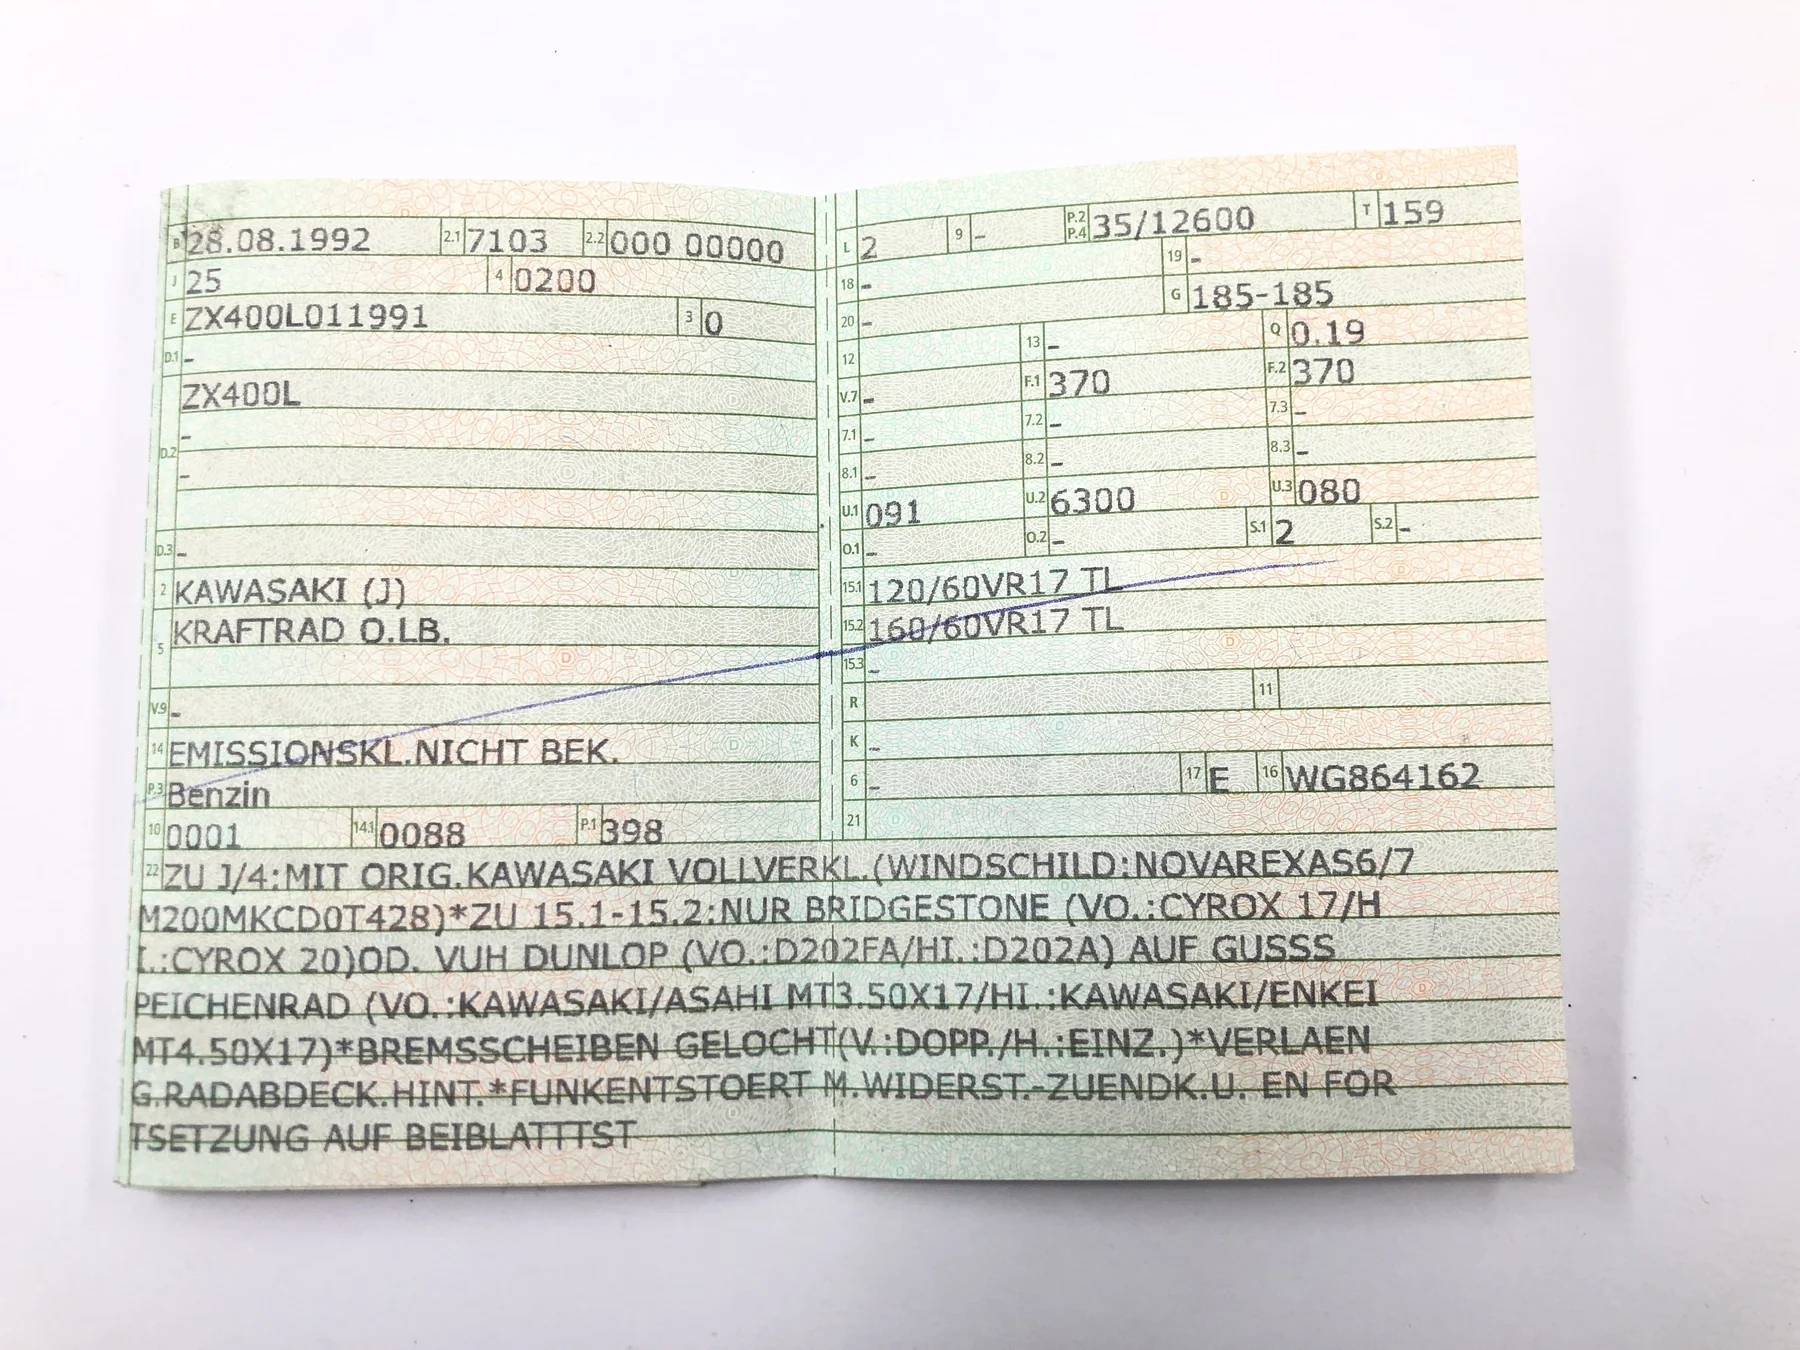 B 28.08.1992 2.1 7103 2.2 000 00000
J 25 4 0200
E ZX400L011991 3 0
D.1 -
ZX400L
-
D.2
-
D.3 -
2 KAWASAKI (J)
5 KRAFTRAD O.LB.
V.9 -
14 EMISSIONSKL.NICHT BEK.
P.3 Benzin
10 0001 14.1 0088 P.1 398
L 2 9 - P.2 P.4 35/12600 T 159
18 - 19 -
20 - G 185-185
12 13 - Q 0.19
V.7 - F.1 370 F.2 370
7.1 - 7.2 - 7.3 -
8.1 - 8.2 - 8.3 -
U.1 091 U.2 6300 U.3 080
O.1 - O.2 - S.1 2 S.2 -
15.1 120/60VR17 TL
15.2 160/60VR17 TL
15.3 -
R 11
K -
6 - 17 E 16 WG864162
21
22 ZU J/4:MIT ORIG.KAWASAKI VOLLVERKL.(WINDSCHILD:NOVAREXAS6/7
M200MKCD0T428)*ZU 15.1-15.2:NUR BRIDGESTONE (VO.:CYROX 17/H
I.:CYROX 20)OD. VUH DUNLOP (VO.:D202FA/HI.:D202A) AUF GUSSS
PEICHENRAD (VO.:KAWASAKI/ASAHI MT3.50X17/HI.:KAWASAKI/ENKEI
MT4.50X17)*BREMSSCHEIBEN GELOCHT(V.:DOPP./H.:EINZ.)*VERLAEN
G.RADABDECK.HINT.*FUNKENTSTOERT M.WIDERST.-ZUENDK.U. EN FOR
TSETZUNG AUF BEIBLATTTST